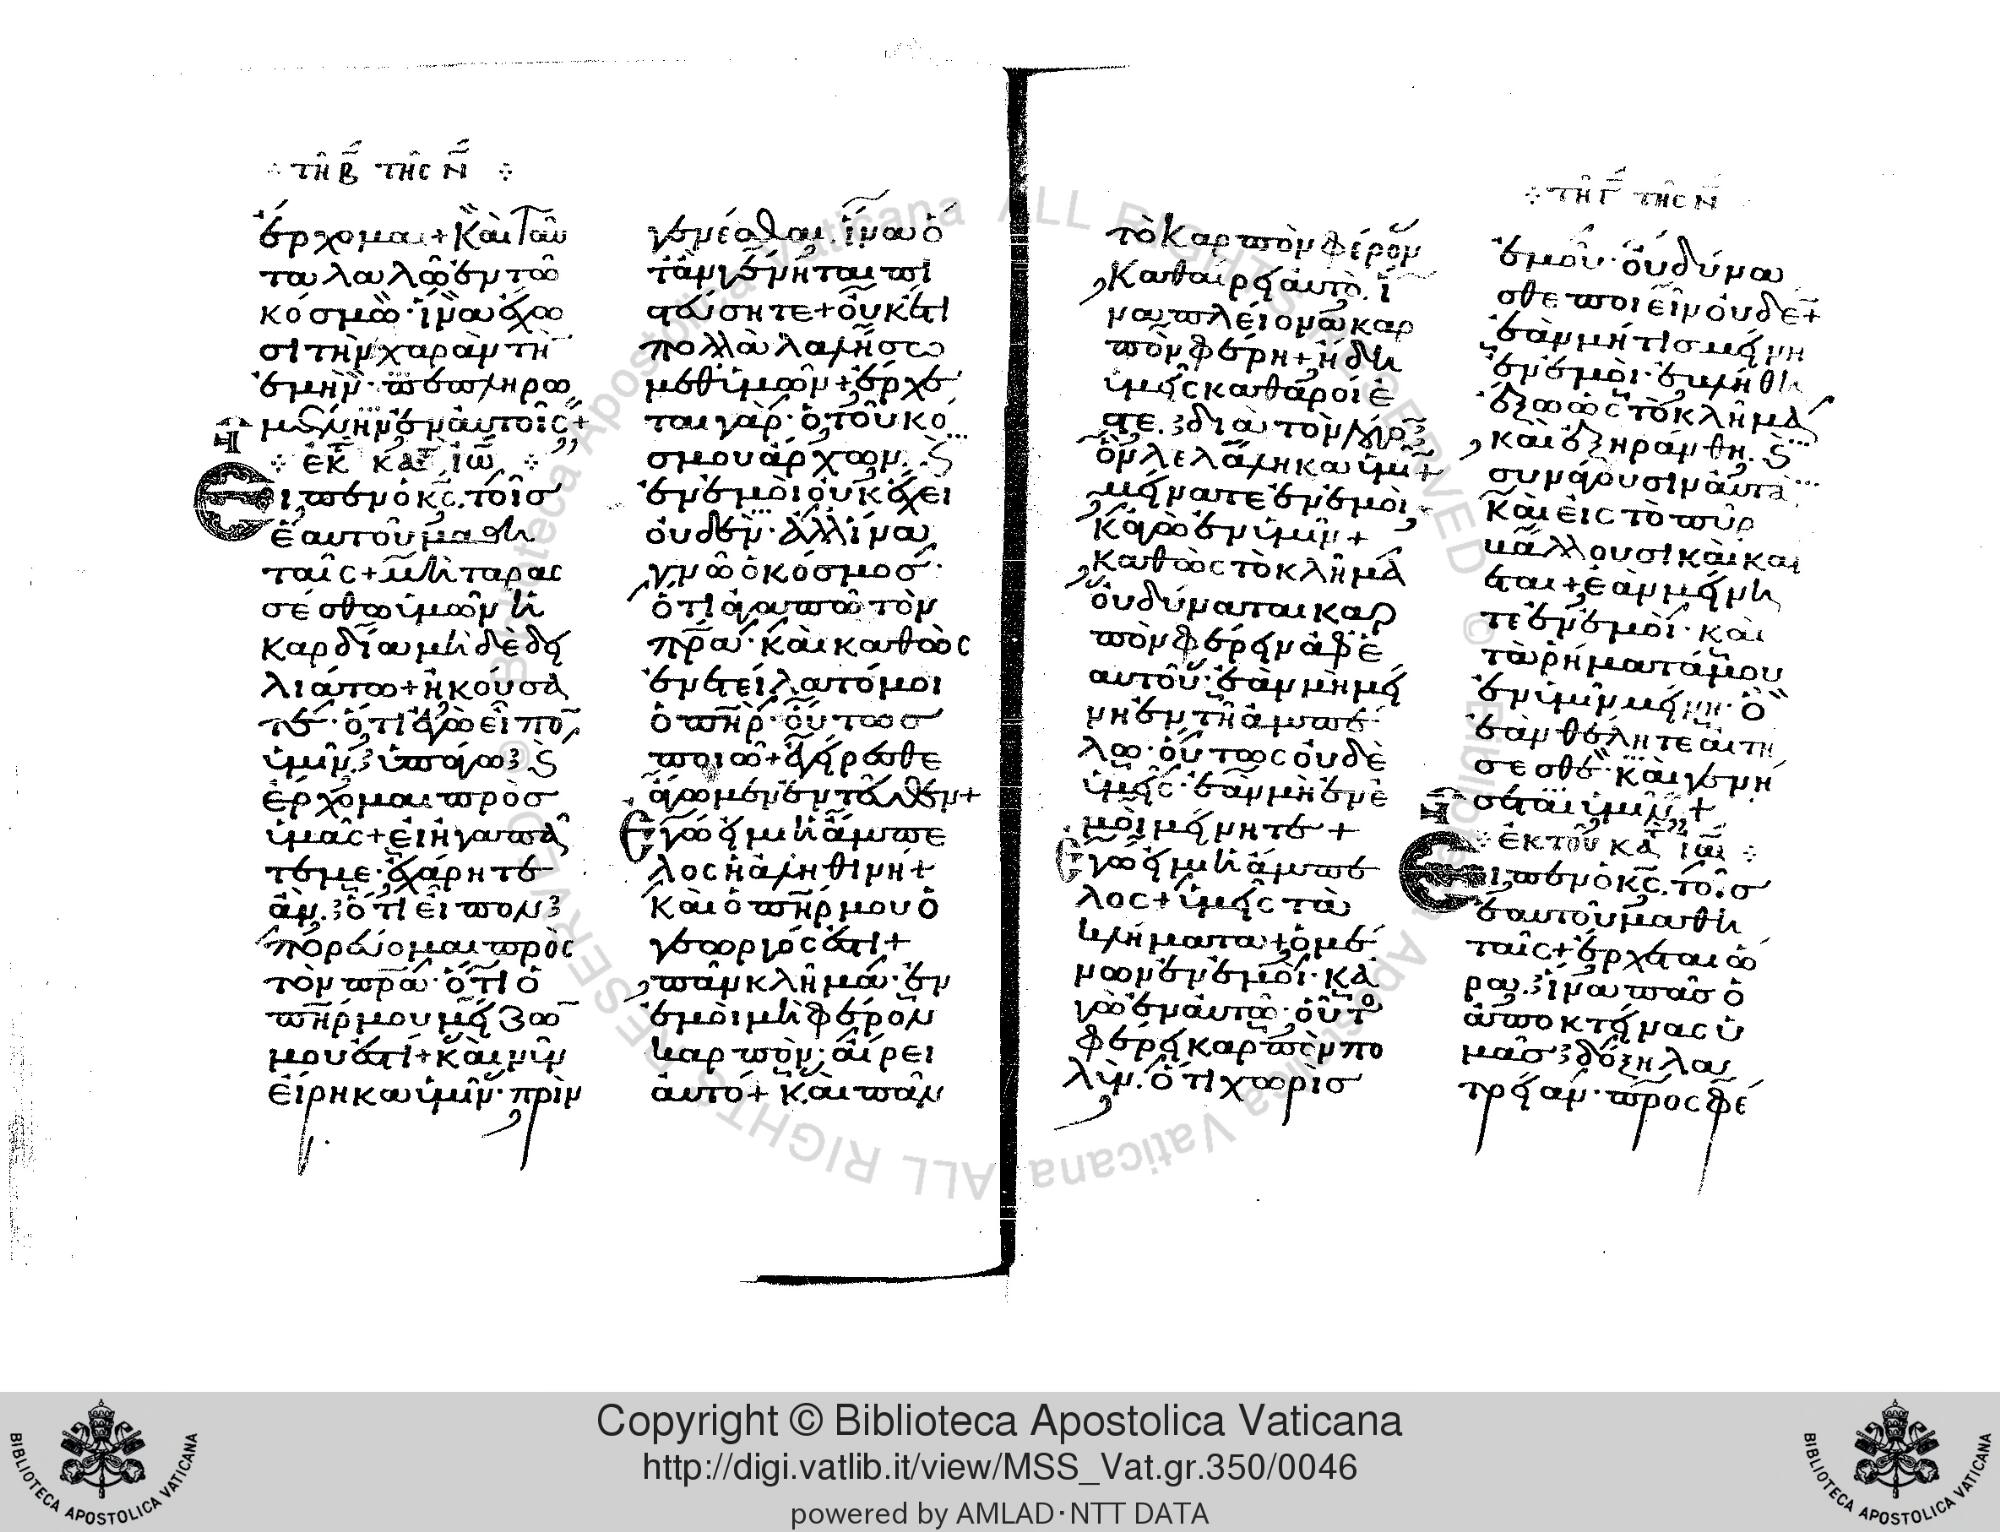 τῆ β τῆς ν
ἔρχομαι + Καὶ ταῦ
τα λαλῶ ἐν τῶ
κόσμω · ἵνα ἔχω
σι τὴν χαρὰν τὴ
ἐμὴν · πεπληρω
μένην ἐν αὐτοῖς +
ἐκ κατ ἰω
Εἶπεν ὁ κς. τοῖς
ἑαυτοῦ μαθη
ταῖς + μὴ ταρασ
σέσθω ὑμῶν ἡ
καρδία μὴ δὲ δει
λιάτω + ἠκούσα
τε · ὅτι ἐγὼ εἶπον
ὑμῖν. ὑπάγω ϗ
ἔρχομαι πρὸς
ὑμᾶς + εἰ ἠγαπᾶ
τέ με · ἐχάρητε
ἄν. ὅτι εἶπον
πορεύομαι πρὸς
τὸν πρα · ὅτι ὁ
πηρ μου μείζω
μου ἐστί + καὶ νῦν
εἴρηκα ὑμῖν · πρὶν
γενέσθαι. ἵνα ὅ
τὰν γένηται πι
στεύσητε + οὐκέτι
πολλὰ λαλήσω
μεθ ὑμῶν + ἔρχε
ται γὰρ · ὁ τοῦ κό
σμου ἄρχων. ϗ
ἐν ἐμοὶ οὐκ ἔχει
οὐδέν · ἀλλ ἵνα
γνῶ ὁ κόσμος ·
ὅτι ἀγαπῶ τὸν
πρα · καὶ καθὼς
ἐντείλατό μοι
ὁ πηρ · οὕτως
ποιῶ + ἐγείρεσθε
ἄγωμεν ἐντεῦθεν +
Ἐγώ εἰμι ἡ ἄμπε
λος ἡ ἀληθινή +
καὶ ὁ πηρ μου ὁ
γεωργός ἐστι +
πᾶν κλῆμα · ἐν
ἐμοὶ μὴ φέρον
καρπόν · αἴρει
αὐτό + καὶ πᾶν
τῆ γ τῆς ν
τὸ καρπὸν φέρον
καθαίρει αὐτὸ. ἵ
να πλείονα καρ
πὸν φέρη + ἤδη
ὑμεῖς καθαροί ἐ
στε. διὰ τὸν λόγο
ὃν λελάληκα ὑμῖ +
μείνατε ἐν ἐμοὶ,
κἀγὼ ἐν ὑμῖν +
καθὼς τὸ κλῆμα
οὐ δύναται καρ
πὸν φέρειν ἀφ ἑ
αυτοῦ · ἐὰν μὴ μεί
νη ἐν τῆ ἀμπέ
λω · οὕτως οὐδὲ
ὑμεῖς · ἐὰν μὴ ἐν ἐ
μοὶ μείνητε +
Ἐγώ εἰμι ἡ ἄμπε
λος + ὑμεῖς τὰ
κλήματα + ὁ μέ
νων ἐν ἐμοί · κἀ
γὼ ἐν αὐτῶ · οὗτο
φέρει καρπὸν πο
λὺν. ὅτι χωρὶς
ἐμοῦ · οὐ δύνα
σθε ποιεῖν οὐδέ +
ἐὰν μή τις μείνη
ἐν ἐμοὶ · ἐβλήθη
ἔξω ὡς τὸ κλῆμα
καὶ ἐξηράνθη. ϗ
συνάγουσιν αὐτὰ
καὶ εἰς τὸ πῦρ
βάλλουσι καὶ καί
εται + ἐὰν μείνη
τε ἐν ἐμοί · καὶ
τὰ ῥήματά μου
ἐν ὑμῖν μείνη · ὃ
ἐὰν θέλητε αἰτή
σεσθε · καὶ γενή
σεται ὑμῖν +
ἐκ τοῦ κατ ἰω
Εἶπεν ὁ κς. τοῖς
ἑαυτοῦ μαθη
ταῖς + ἔρχεται ὥ
ρα. ἵνα πᾶς ὁ
ἀποκτείνας ὑ
μᾶς δόξη λα
τρείαν · προσφέ
Copyright © Biblioteca Apostolica Vaticana
http://digi.vatlib.it/view/MSS_Vat.gr.350/0046
powered by AMLAD·NTT DATA
BIBLIOTECA APOSTOLICA VATICANA
BIBLIOTECA APOSTOLICA VATICANA
© Biblioteca Apostolica Vaticana ALL RIGHTS RESERVED © Biblioteca Apostolica Vaticana ALL RIGHTS RESERVED